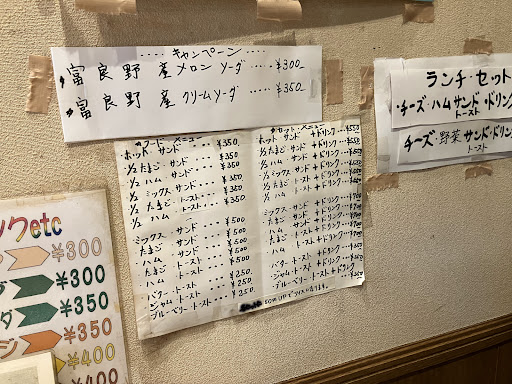 ‥‥キャンペーン‥‥
富良野産メロンソーダ‥‥¥300
富良野産クリームソーダ‥‥¥350
フード・メニュー
ホット サンド‥‥¥350
1/2 たまご・サンド‥‥¥350
1/2 ハム・サンド‥‥¥350
1/2 ミックス・サンド‥‥¥350
1/2 たまご・トースト‥‥¥350
1/2 ハム・トースト‥‥¥350
ミックス・サンド‥‥¥500
たまご・サンド‥‥¥500
ハム・サンド‥‥¥500
たまご・トースト‥‥¥500
ハム・トースト‥‥¥500
バター・トースト‥‥¥250
ジャム・トースト‥‥¥250
ブルーベリー・トースト‥‥¥250
セット・メニュー
ホット サンド+ドリンク‥‥¥550
1/2 たまご・サンド+ドリンク‥‥¥550
1/2 ハム・サンド+ドリンク‥‥¥550
1/2 ミックス・サンド+ドリンク‥‥¥550
1/2 たまご・トースト+ドリンク‥‥¥550
1/2 ハム・トースト+ドリンク‥‥¥550
ミックス・サンド+ドリンク‥‥¥700
たまご・サンド+ドリンク‥‥¥700
ハム・サンド+ドリンク‥‥¥700
たまご・トースト+ドリンク‥‥¥700
ハム・トースト+ドリンク‥‥¥700
バター・トースト+ドリンク
ジャム・トースト+ドリンク
ブルーベリー・トースト+ドリンク
ランチ・セット
・チーズ・ハムサンド・ドリン
トースト
・チーズ・野菜サンド・ドリンク
トースト
ックetc
¥300
¥300
¥350
¥350
¥400
¥400